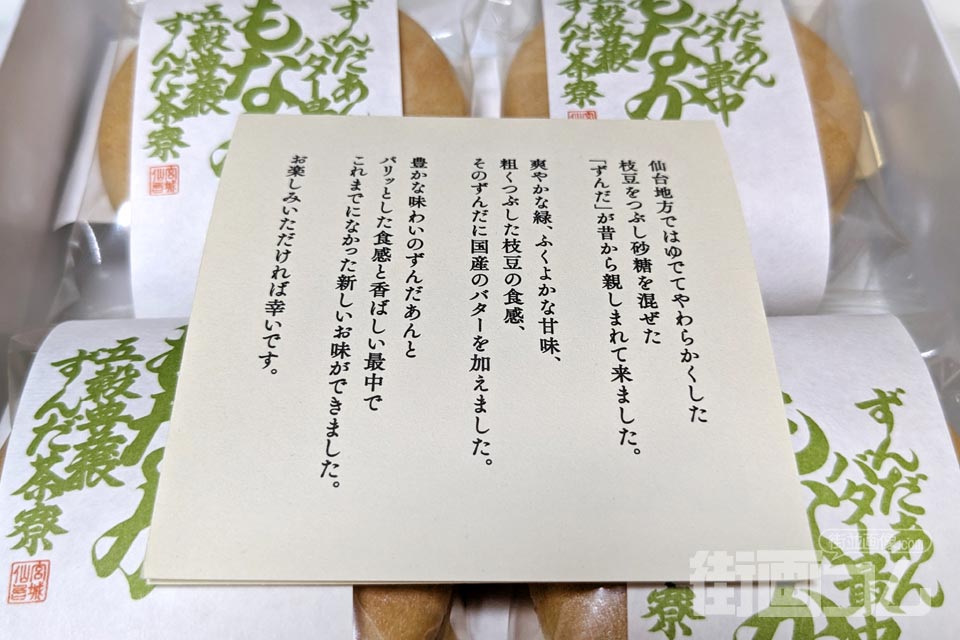 仙台地方ではゆでてやわらかくした
枝豆をつぶし砂糖を混ぜた
「ずんだ」が昔から親しまれて来ました。
爽やかな緑、ふくよかな甘味、
粗くつぶした枝豆の食感、
そのずんだに国産のバターを加えました。
豊かな味わいのずんだあんと
パリッとした食感と香ばしい最中で
これまでになかった新しいお味ができました。
お楽しみいただければ幸いです。
ずんだあん
バター最中
もなか
五穀豊穣
ずんだ茶寮
宮城
仙台
ずんだあん
バター最中
もなか
五穀豊穣
ずんだ茶寮
もなか
五穀豊穣
ずんだ茶寮
宮城
仙台
ずんだあん
バター最中
街画コム
街画コム.com